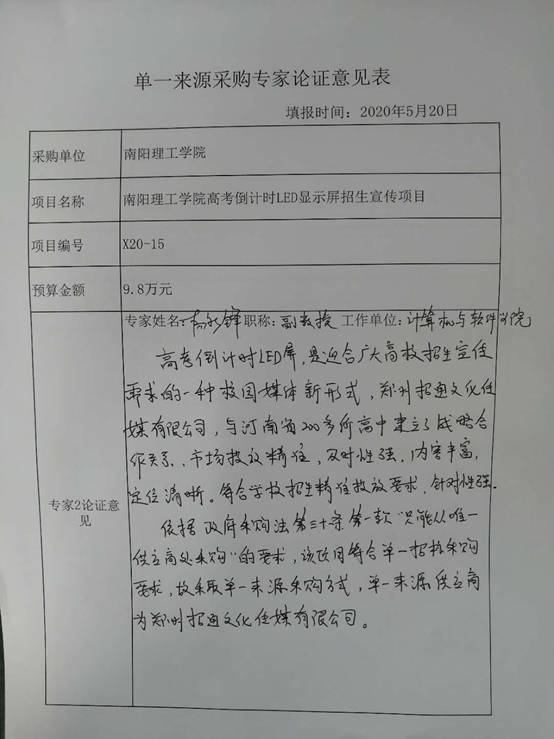 单一来源采购专家论证意见表
填报时间：2020年5月20日
采购单位 南阳理工学院
项目名称 南阳理工学院高考倒计时LED显示屏招生宣传项目
项目编号 X20-15
预算金额 9.8万元
专家姓名：杨永锋 职称：副教授 工作单位：计算机与软件学院
专家2论证意见
高考倒计时LED屏，是迎合广大高校招生宣传
要求的一种校园媒体新形式，郑州招通文化传
媒有限公司，与河南省200多所高中建立了战略合
作关系、市场投放精准，及时性强，内容丰富，
定位清晰。符合学校招生精准投放要求，针对性强。
依据政府采购法第三十条第一款"只能从唯一
供应商处采购"的要求，该项目符合单一招标采购
要求，故采取单一来源采购方式，单一来源供应商
为郑州招通文化传媒有限公司。